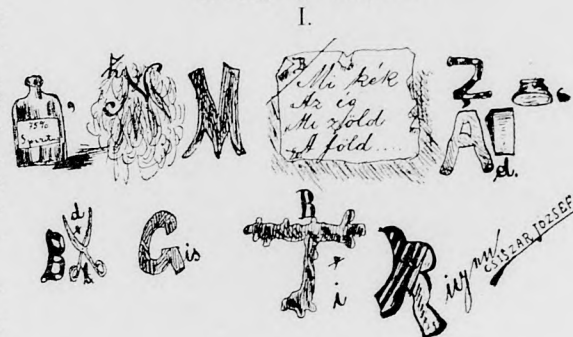 I.
75%
Spirit
N M
Mi kék
Az ég
Mi zöld
A föld....
Z
A
d.
d
B
Gis
B
T
+
i
R
CSISZAR JOZSEF